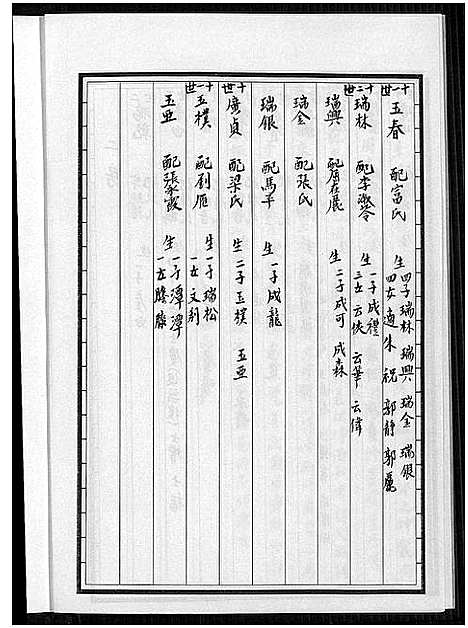 十一世
玉春 配富氏 生 四子 瑞林 瑞興 瑞金 瑞银
四女 適朱 祝 郭靜 郭麗
十二世
瑞林 配李淑苓 生 一子 成禮
三女 云俠 云華 云偉
瑞興 配居在展 生 二子 成可 成森
瑞金 配張氏
瑞银 配馬平 生 一子 成龍
十世
廣貞 配梁氏 生 二子 玉樸 玉亜
十一世
玉樸 配劉雁 生 一子 瑞松
一女 文別
玉亜 配張家霞 生 一子 潭潭
一女 騰騰